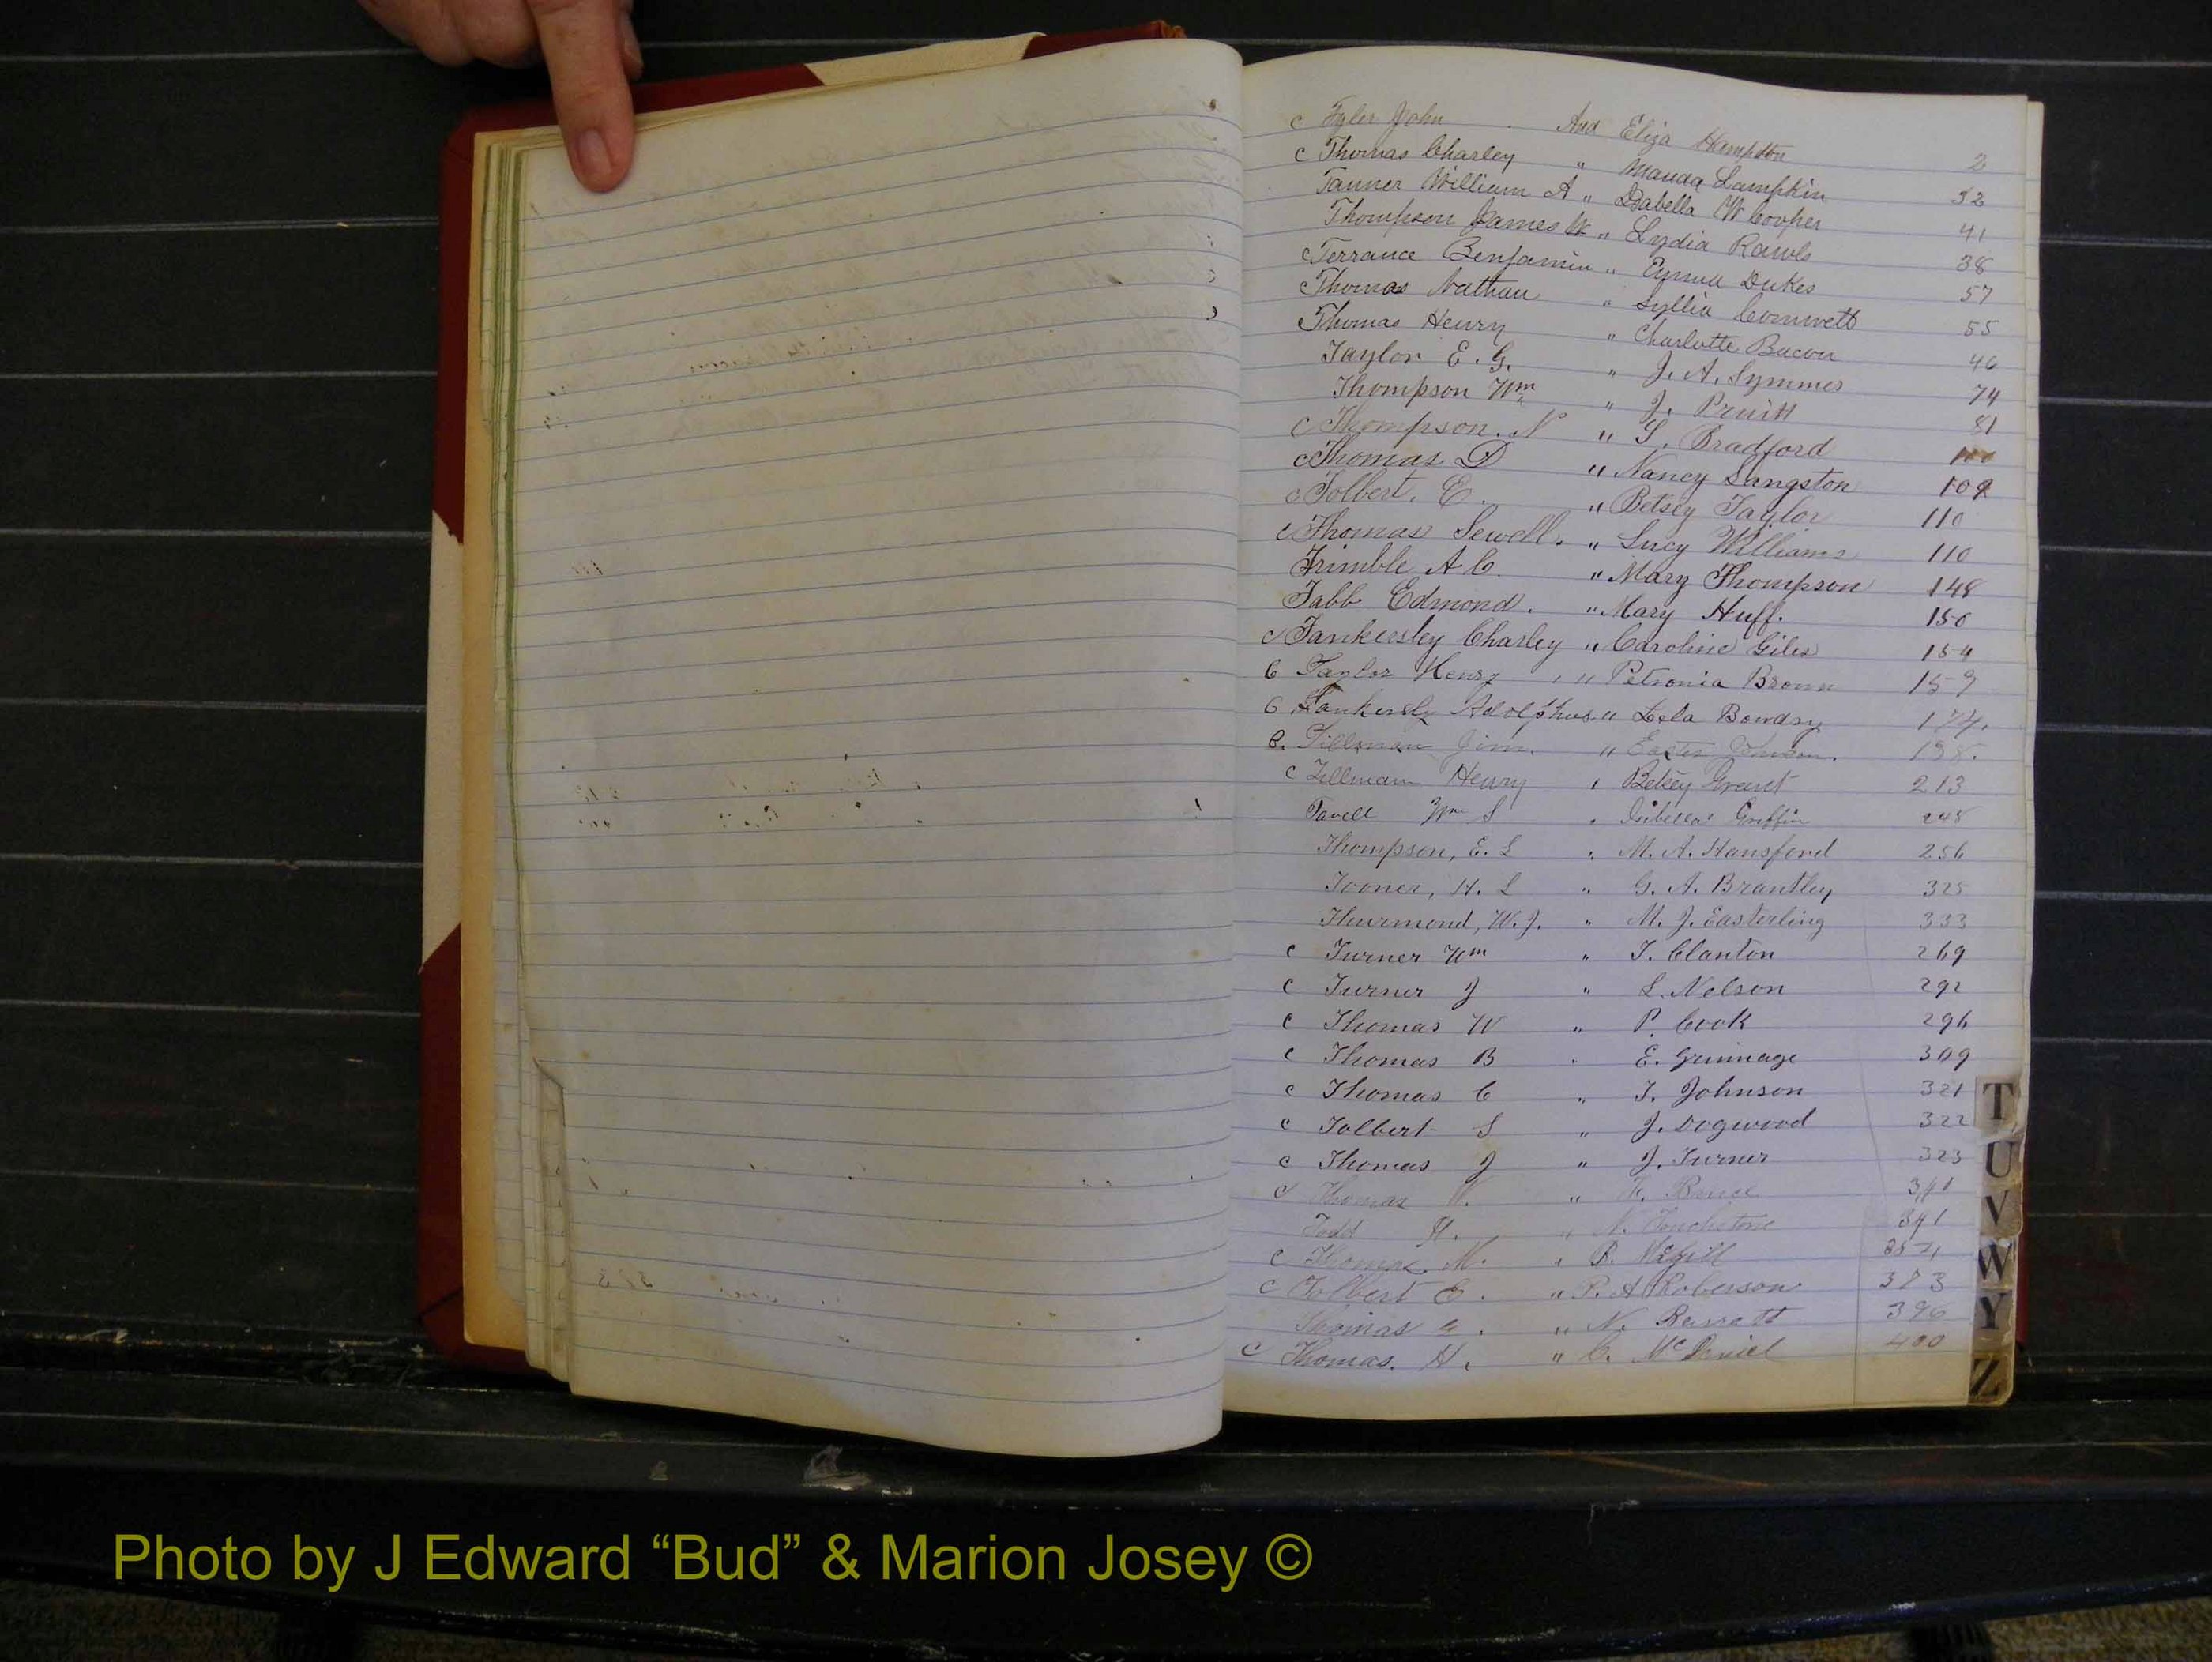 c Tyler John And Eliza Hampton 2
c Thomas Charley " Manda Lampkin 32
Tanner William A " Isabella W Cooper 41
Thompson James W " Lydia Rawls 38
c Terrance Benjamin " Emma Dukes 57
c Thomas Nathan " Syllia 55
Thomas Henry " Charlotte Bacon 46
Taylor E. G. " J. A. Symmes 74
Thompson Wm " J. Pruitt 81
c Thompson. N " S. Bradford
c Thomas D " Nancy Langston 109
c Tolbert. E. " Betsey Taylor 110
c Thomas Sewell. " Lucy Williams 110
Trimble A C. " Mary Thompson 148
Tabb Edmond. " Mary Huff. 150
c Tankersley Charley " Caroline Giles 154
C Taylor Henry " Petronia Brown 159
C Tankersly Adolphus " Lela Bowdry 174.
C. Tillman Jim. " Easter Johnson. 198.
c Tillman Henry " Betsey Grant 213
Wm S " Isibella Griffin 248
Thompson, E. L " M. A. Hansford 256
Tooner, H. L " G. A. Brantley 325
Thurmond, W. J. " M. J. Easterling 333
c Turner Wm " T. Clanton 269
c Turner J " L. Nelson 292
c Thomas W " P. Cook 296
c Thomas B " E. Grinnage 309
c Thomas C " T. Johnson 321
c Tolbert S " J. Dogwood 322
c Thomas J " J. Turner 323
c Thomas W. " Bruce 341
Todd H. " N. Touchstone 341
c Thomas M. " B. McGill 354
c Tolbert E. " P. A Roberson 373
Thomas " N. 396
c Thomas. H. " C. McDaniel 400
T
U
V
W
Y
Z
Photo by J Edward “Bud” & Marion Josey ©